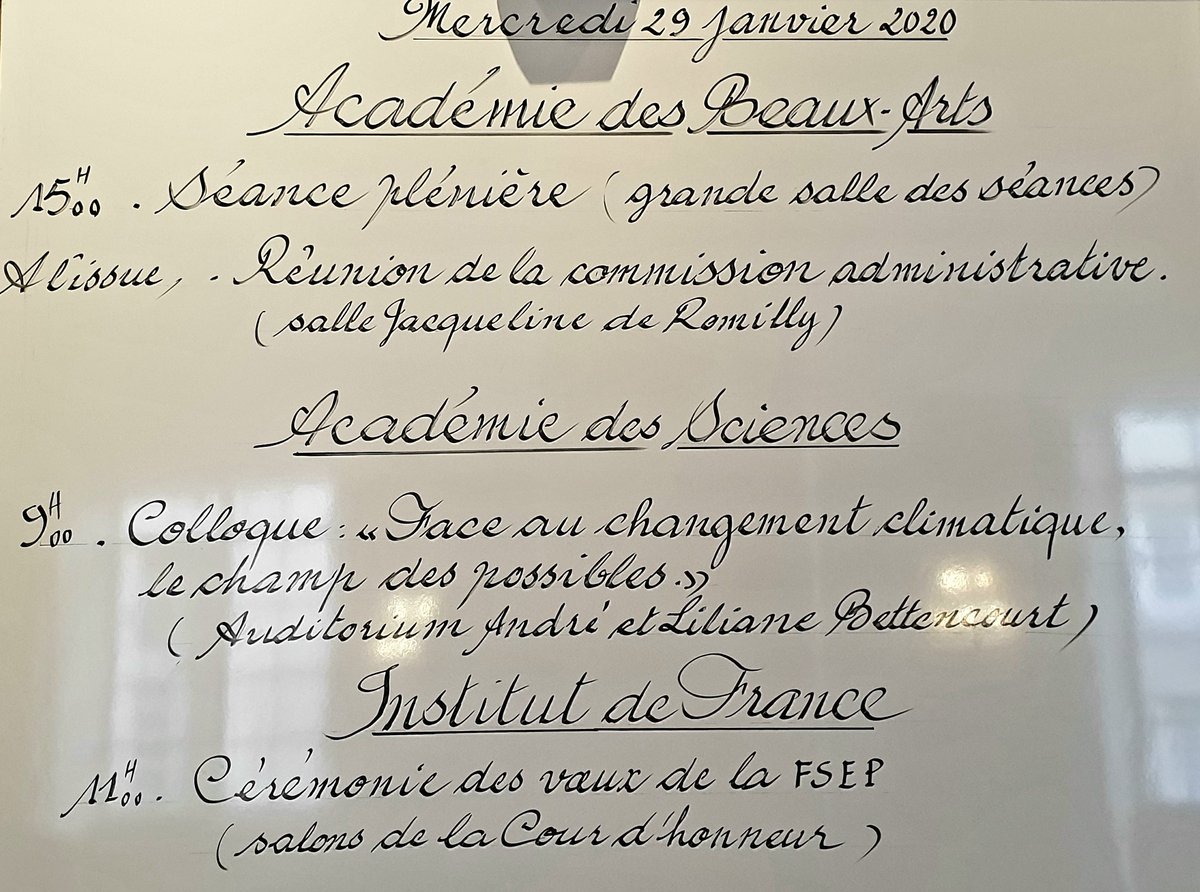 Mercredi 29 janvier 2020
Académie des Beaux-Arts
15H00 . Séance plénière (grande salle des séances)
A l'issue, . Réunion de la commission administrative.
(salle Jacqueline de Romilly)
Académie des Sciences
9H00 . Colloque : «Face au changement climatique,
le champ des possibles.»
(Auditorium André et Liliane Bettencourt)
Institut de France
11H00 . Cérémonie des vœux de la FSEP
(salons de la Cour d'honneur)